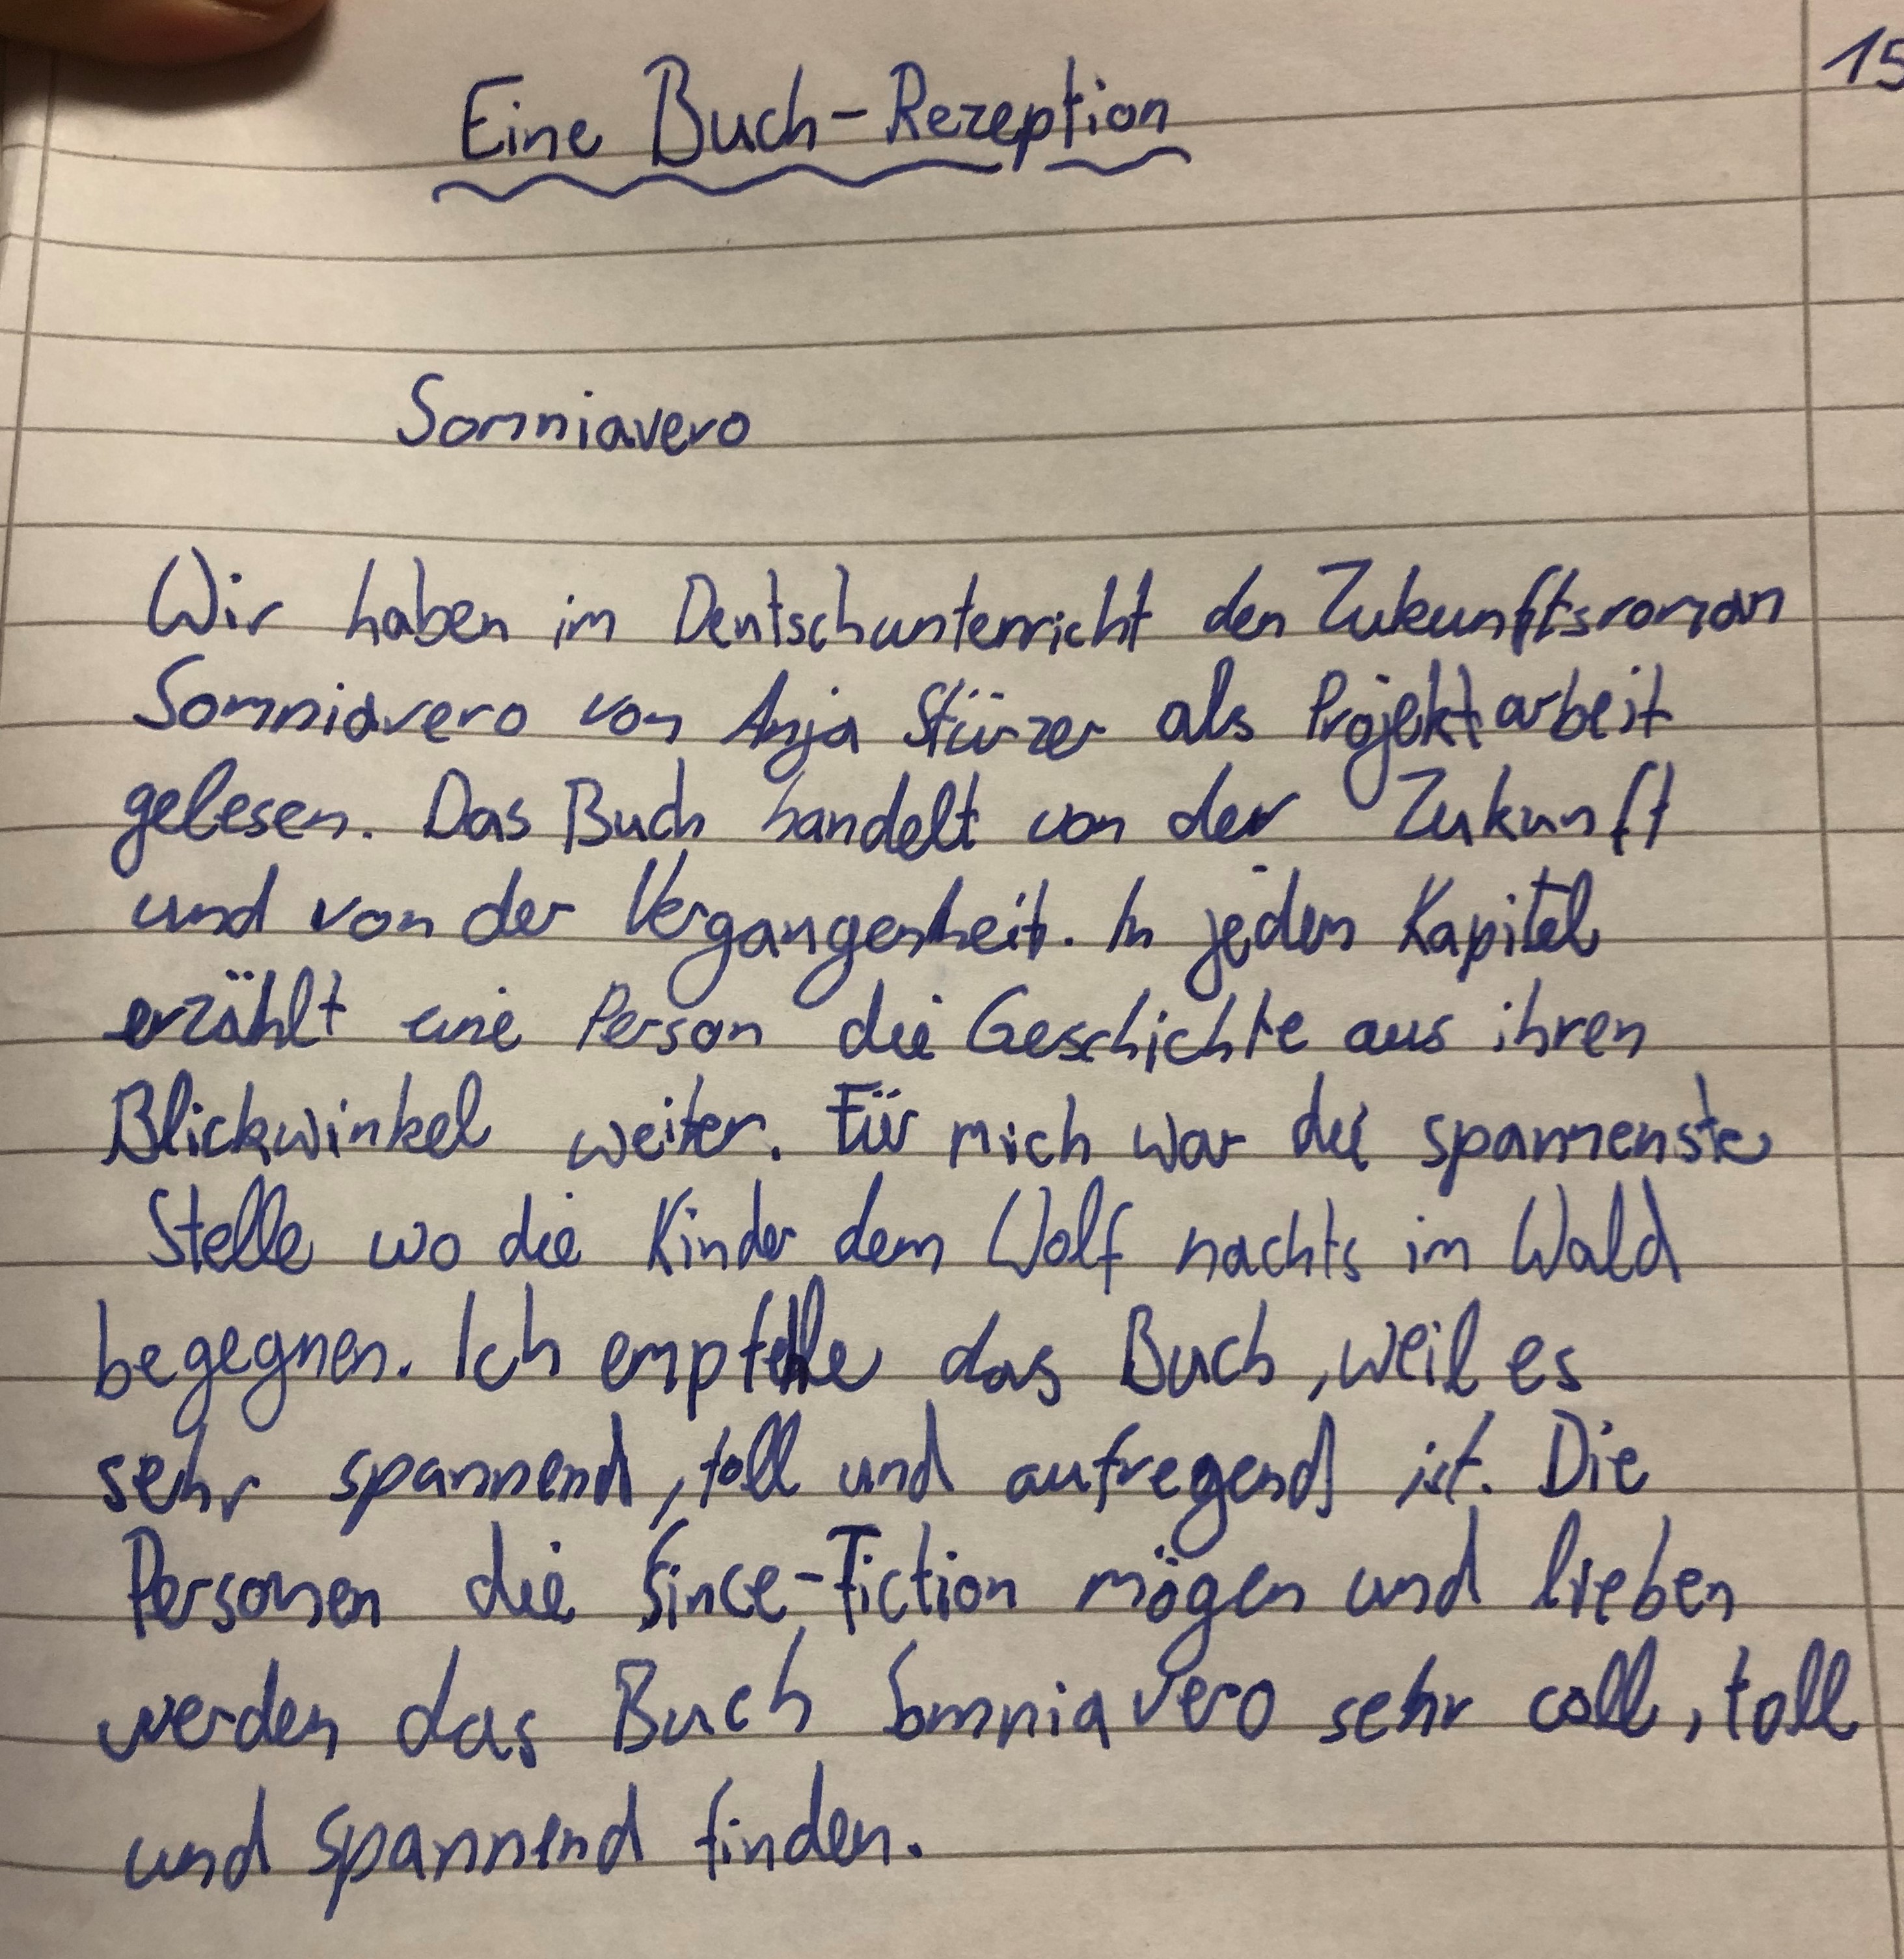 15
Eine Buch-Rezeption
Somniavero
Wir haben im Deutschunterricht den Zukunftsroman
Somniavero von Anja Stürzer als Projektarbeit
gelesen. Das Buch handelt von der Zukunft
und von der Vergangenheit. In jeden Kapitel
erzählt eine Person die Geschichte aus ihren
Blickwinkel weiter. Für mich war die spannenste
Stelle wo die Kinder dem Wolf nachts im Wald
begegnen. Ich empfehle das Buch, weil es
sehr spannend, toll und aufregend ist. Die
Personen die Since-Fiction mögen und lieben
werden das Buch Somniavero sehr coll, toll
und spannend finden.